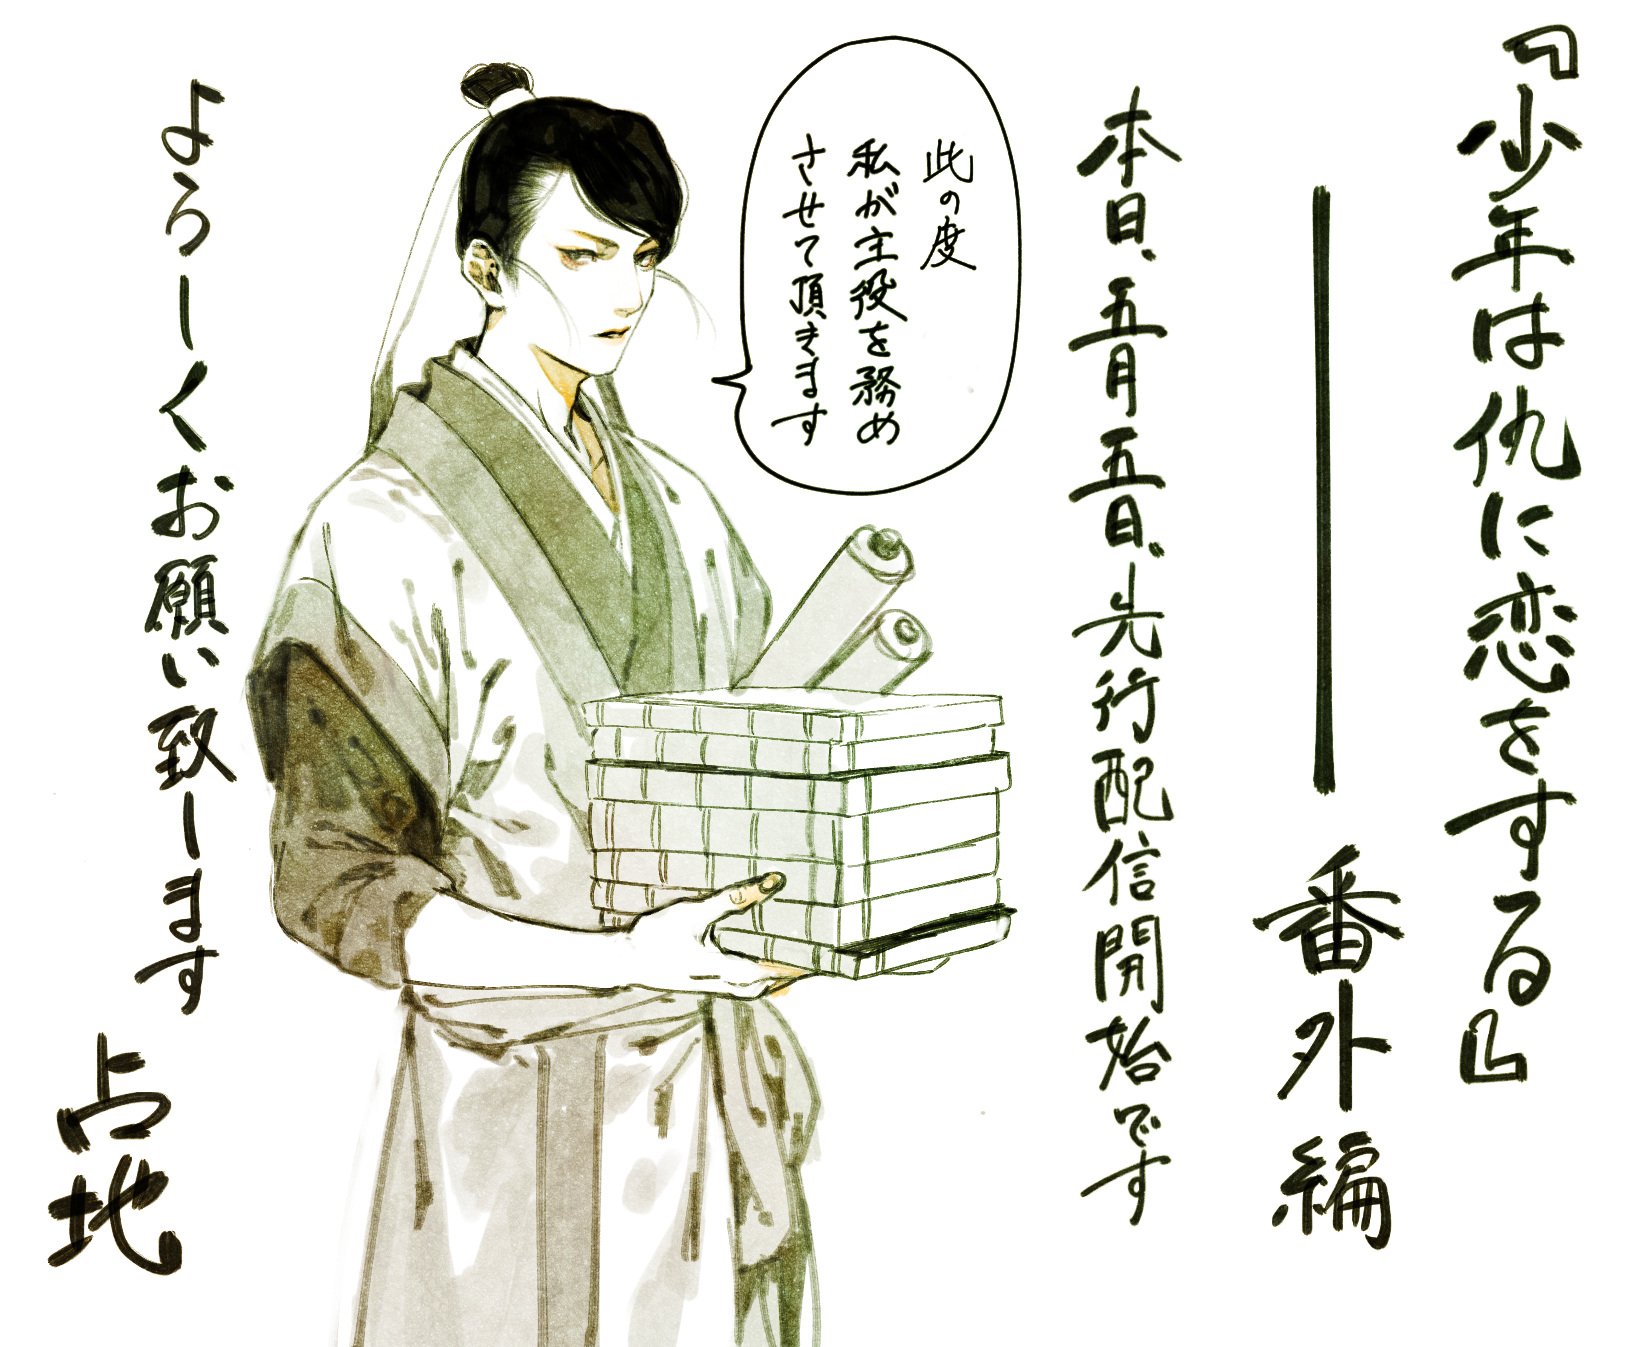 『少年は仇に恋をする』
――番外編
本日、五月五日、先行配信開始です
此の度
私が主役を務め
させて頂きます
よろしくお願い致します
占地